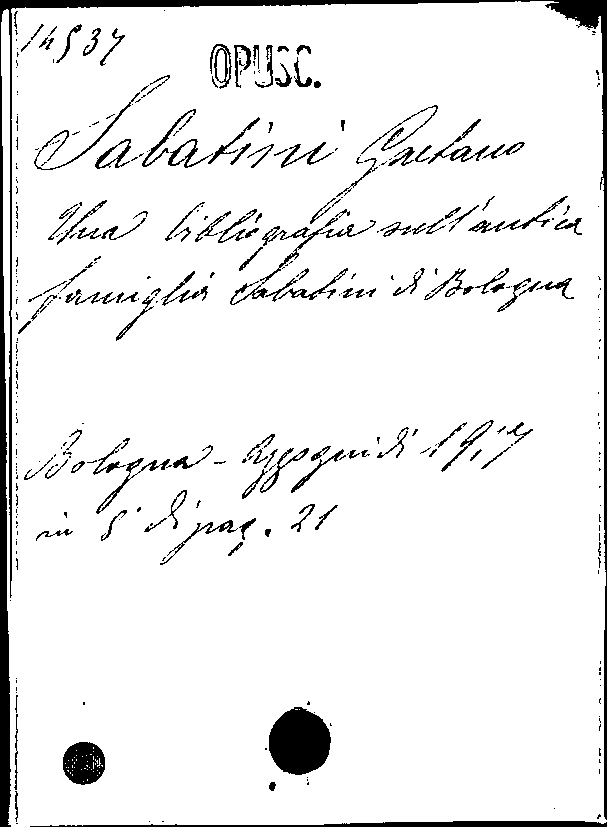 14537
OPUSC.
Sabatini Gaetano
Una bibliografia sull'antica
famiglia Sabatini di Bologna
Bologna - Azzoguidi 1917
in 8° di pag. 21